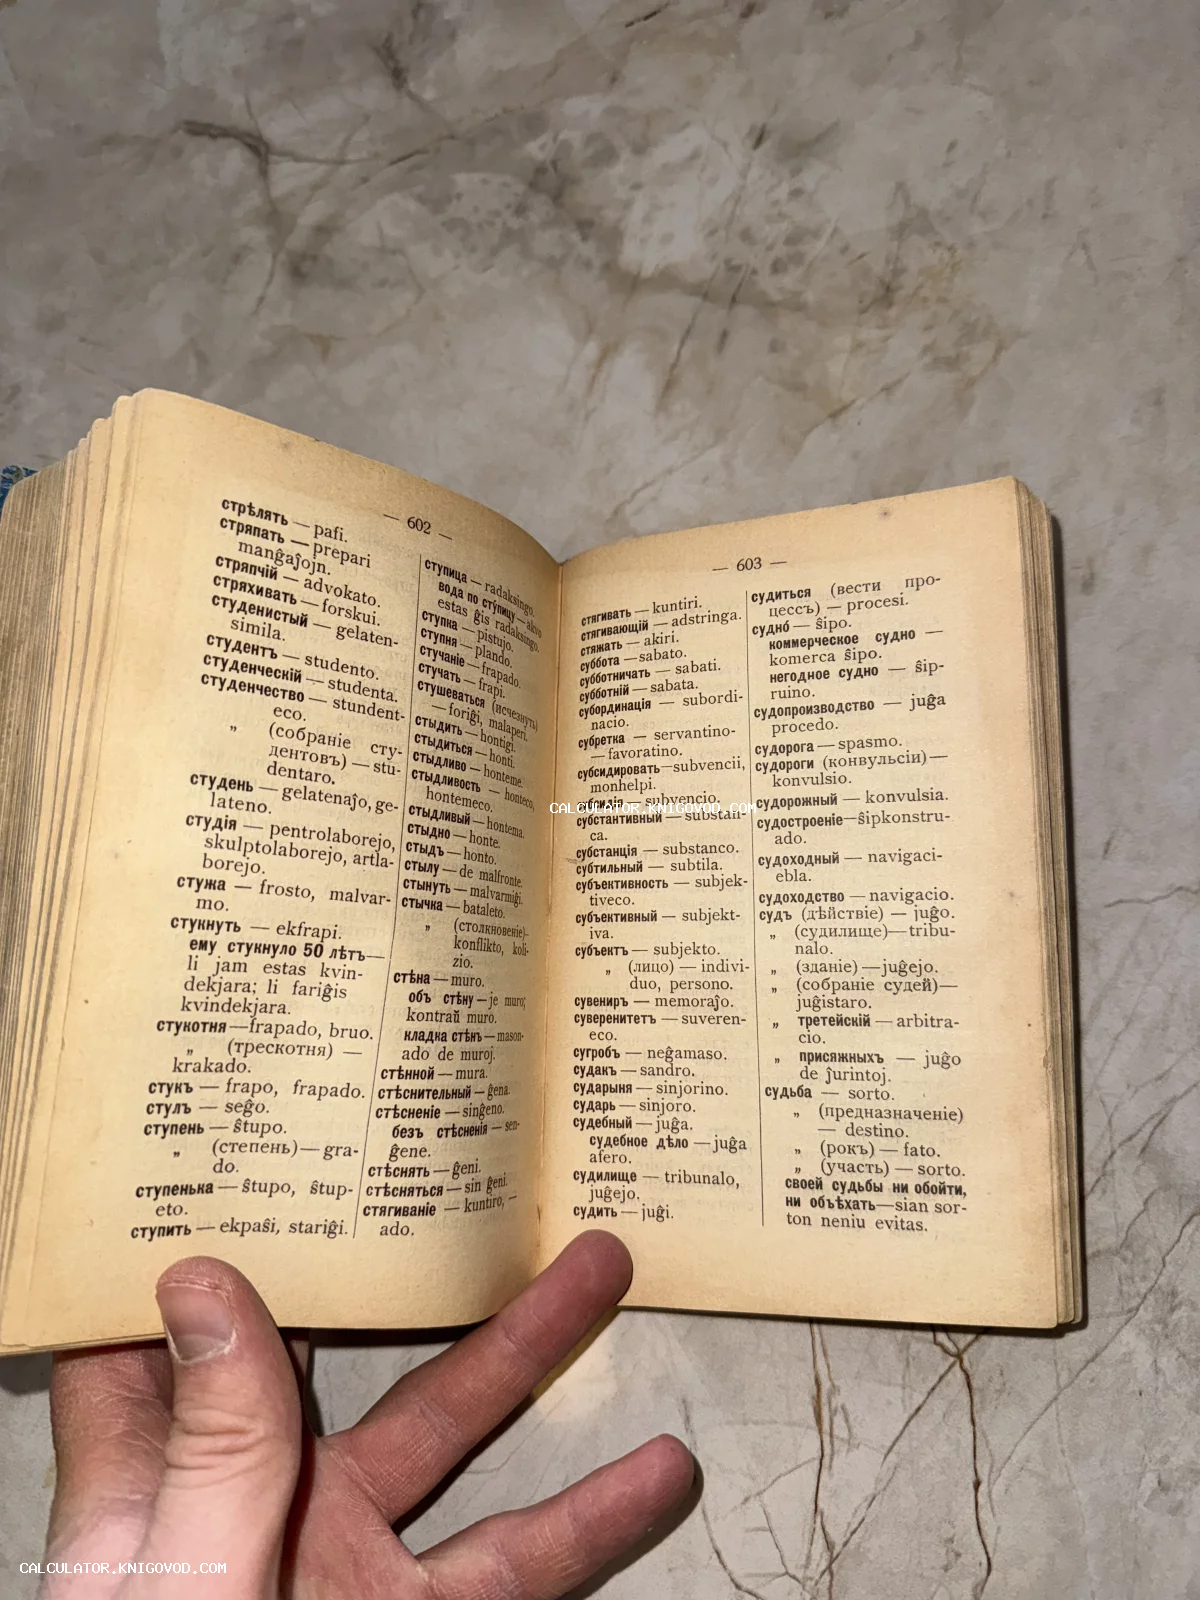 — 602 —
стрѣлять — pafi.
стряпать — prepari
manĝaĵojn.
стряпчій — advokato.
стряхивать — forskui.
студенистый — gelaten-
simila.
студентъ — studento.
студенческій — studenta.
студенчество — stundent-
eco.
„ (собраніе сту-
дентовъ) — stu-
dentaro.
студень — gelatenaĵo, ge-
lateno.
студія — pentrolaborejo,
skulptolaborejo, artla-
borejo.
стужа — frosto, malvar-
mo.
стукнуть — ekfrapi.
ему стукнуло 50 лѣтъ—
li jam estas kvin-
dekjara; li fariĝis
kvindekjara.
стукотня — frapado, bruo.
„ (трескотня) —
krakado.
стукъ — frapo, frapado.
стулъ — seĝo.
ступень — ŝtupo.
„ (степень) — gra-
do.
ступенька — ŝtupo, ŝtup-
eto.
ступить — ekpaŝi, stariĝi.
ступица — radaksingo.
вода по сту́пицу — akvo
estas ĝis radaksingo.
ступка — pistujo.
ступня — plando.
стучаніе — frapado.
стучать — frapi.
стушеваться (исчезнуть)
— foriĝi, malaperi.
стыдить — hontigi.
стыдиться — honti.
стыдливо — honteme.
стыдливость — honteco,
hontemeco.
стыдливый — hontema.
стыдно — honte.
стыдъ — honto.
стылу — de malfronte.
стынуть — malvarmiĝi.
стычка — bataleto.
„ (столкновеніе)—
konflikto, koli-
zio.
стѣна — muro.
объ стѣну — je muro;
kontraŭ muro.
кладка стѣнъ — mason-
ado de muroj.
стѣнной — mura.
стѣснительный — ĝena.
стѣсненіе — sinĝeno.
безъ стѣсненія — sen-
ĝene.
стѣснять — ĝeni.
стѣсняться — sin ĝeni.
стягиваніе — kuntiro, —
ado.
— 603 —
стягивать — kuntiri.
стягивающій — adstringa.
стяжать — akiri.
суббота — sabato.
субботничать — sabati.
субботній — sabata.
субординація — subordi-
nacio.
субретка — servantino-
— favoratino.
субсидировать — subvencii,
monhelpi.
subvencio.
субстантивный — substan-
ca.
субстанція — substanco.
субтильный — subtila.
субъективность — subjek-
tiveco.
субъективный — subjekt-
iva.
субъектъ — subjekto.
„ (лицо) — indivi-
duo, persono.
сувениръ — memoraĵo.
суверенитетъ — suveren-
eco.
сугробъ — neĝamaso.
судакъ — sandro.
сударыня — sinjorino.
сударь — sinjoro.
судебный — juĝa.
судебное дѣло — juĝa
afero.
судилище — tribunalo,
juĝejo.
судить — juĝi.
судиться (вести про-
цессъ) — procesi.
судно́ — ŝipo.
коммерческое судно —
komerca ŝipo.
негодное судно — ŝip-
ruino.
судопроизводство — juĝa
procedo.
судорога — spasmo.
судороги (конвульсіи) —
konvulsio.
судорожный — konvulsia.
судостроеніе — ŝipkonstru-
ado.
судоходный — navigaci-
ebla.
судоходство — navigacio.
судъ (дѣйствіе) — juĝo.
„ (судилище) — tribu-
nalo.
„ (зданіе) — juĝejo.
„ (собраніе судей) —
juĝistaro.
„ третейскій — arbitra-
cio.
„ присяжныхъ — juĝo
de ĵurintoj.
судьба — sorto.
„ (предназначеніе)
— destino.
„ (рокъ) — fato.
„ (участь) — sorto.
своей судьбы ни обойти,
ни объѣхать — sian sor-
ton neniu evitas.
CALCULATOR.KNIGOVOD.COM
CALCULATOR.KNIGOVOD.COM